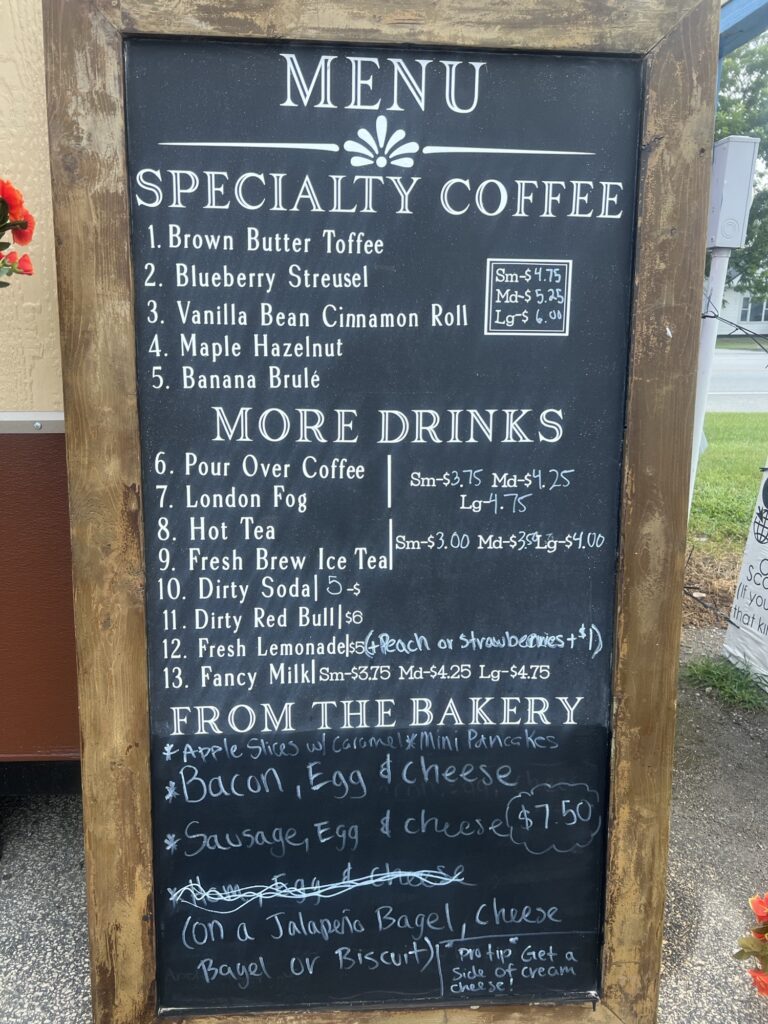 MENU
SPECIALTY COFFEE
1. Brown Butter Toffee
2. Blueberry Streusel
3. Vanilla Bean Cinnamon Roll
4. Maple Hazelnut
5. Banana Brulé
Sm-$4.75
Md-$5.25
Lg-$6.00
MORE DRINKS
6. Pour Over Coffee
7. London Fog
Sm-$3.75 Md-$4.25
Lg-4.75
8. Hot Tea
9. Fresh Brew Ice Tea
Sm-$3.00 Md-$3.50 Lg-$4.00
10. Dirty Soda| 5-$
11. Dirty Red Bull|$6
12. Fresh Lemonade|$5(+Peach or Strawberries+$1)
13. Fancy Milk|Sm-$3.75 Md-$4.25 Lg-$4.75
FROM THE BAKERY
*Apple Slices w/ Caramel *Mini Pancakes
*Bacon, Egg & Cheese
*Sausage, Egg & cheese $7.50
*Ham, Egg & Cheese
(on a Jalapeño Bagel, Cheese
Bagel or Biscuit)
"Pro tip" Get a
side of cream
cheese!
(If you
that kin